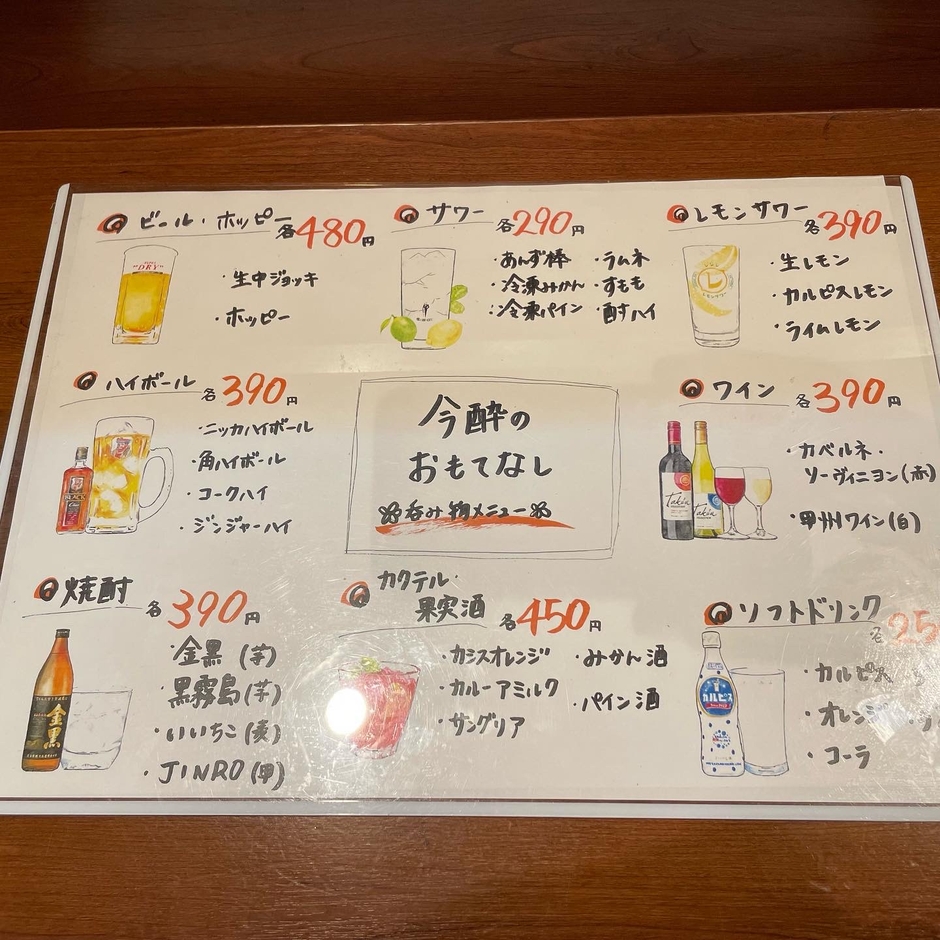 ビール・ホッピー 各480円
・生中ジョッキ
・ホッピー
サワー 各290円
・あんず棒 ・ラムネ
・冷凍みかん ・すもも
・冷凍パイン ・酎ハイ
レモンサワー 各390円
・生レモン
・カルピスレモン
・ライムレモン
ハイボール 各390円
・ニッカハイボール
・角ハイボール
・コークハイ
・ジンジャーハイ
今酔の
おもてなし
呑み物メニュー
ワイン 各390円
・カベルネ・
ソーヴィニヨン(赤)
・甲州ワイン(白)
焼酎 各390円
・金黒(芋)
・黒霧島(芋)
・いいちこ(麦)
・JINRO(甲)
カクテル・
果実酒 各450円
・カシスオレンジ ・みかん酒
・カルーアミルク ・パイン酒
・サングリア
ソフトドリンク
各25
・カルピス
・オレンジ
・コーラ
DRY
レモンサワー
BLACK
Takun
Takun
金黒
カルピス